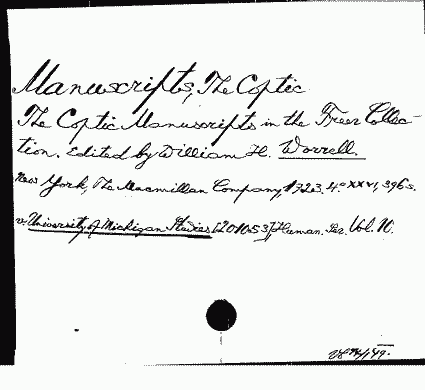 Manuscripts, The Coptic
The Coptic Manuscripts in the Freer Collec-
tion. Edited by William H. Worrell.
New York, The Macmillan Company, 1923. 4° XXVI, 396 s.
v. University of Michigan Studies [201053] Human. Ser. Vol. 10.